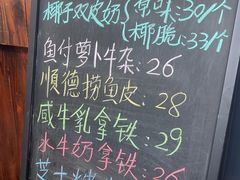 椰子双皮奶{原味:30/个
椰脆:33/个
鱼付萝卜牛杂:26
顺德捞鱼皮:28
咸牛乳拿铁:29
水牛奶拿铁:26
芝士